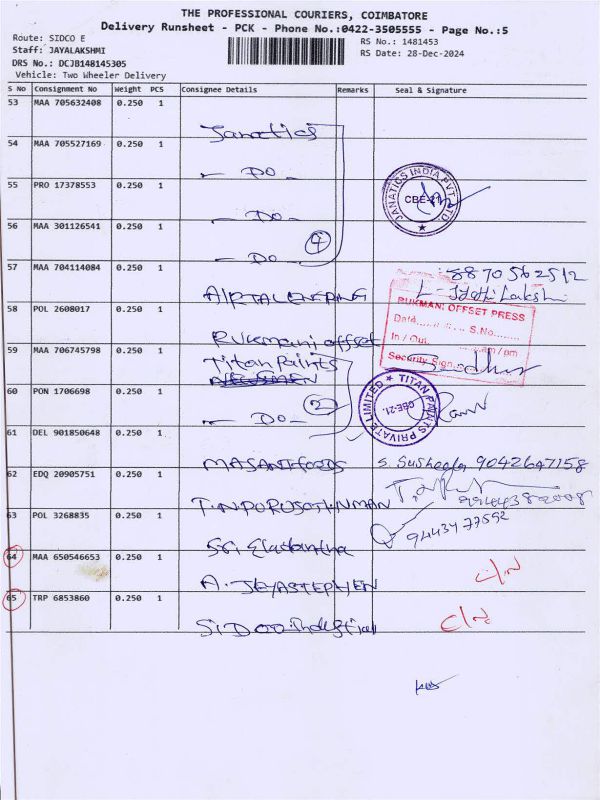 THE PROFESSIONAL COURIERS, COIMBATORE
Delivery Runsheet - PCK - Phone No.:0422-3505555 - Page No.:5
Route: SIDCO E
Staff: JAYALAKSHMI
DRS No.: DCJB148145305
Vehicle: Two Wheeler Delivery
RS No.: 1481453
RS Date: 28-Dec-2024
S No Consignment No Weight PCS Consignee Details Remarks Seal & Signature
53 MAA 705632408 0.250 1 Janatics
54 MAA 705527169 0.250 1 - DO -
55 PRO 17378553 0.250 1 - DO -
JANATICS INDIA PVT LTD
CBE-21
56 MAA 301126541 0.250 1 - DO - 4
57 MAA 704114084 0.250 1 8870562512
58 POL 2608017 0.250 1 Rukmani offset
RUKMANI OFFSET PRESS
Date S.No.
In / Out. am / pm
Security Sign.
59 MAA 706745798 0.250 1 Titan Paints
60 PON 1706698 0.250 1 - DO - 2
TITAN PAINTS PRIVATE LIMITED
CBE-21
61 DEL 901850648 0.250 1 S. Susheela 9042647158
62 EDQ 20905751 0.250 1
63 POL 3268835 0.250 1 Sri 9443477592
64 MAA 650546653 0.250 1 A. JEYASTEPHEN C/N
65 TRP 6853860 0.250 1 C/N